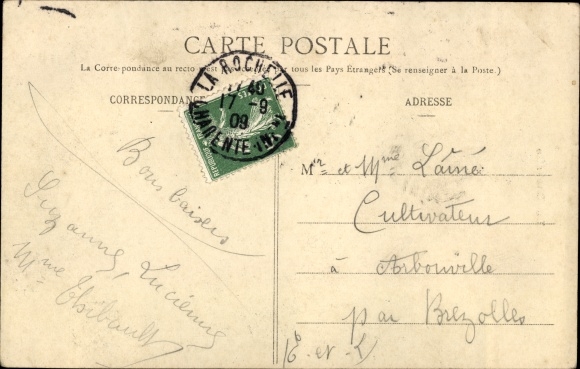 CARTE POSTALE
La Corre-pondance au recto n'est pas par tous les Pays Étrangers (Se renseigner à la Poste.)
CORRESPONDANCE
ADRESSE
LA ROCHELLE
17 40
17 -9
09
CHARENTE-INFRE
Bons baisers
Suzanne, Lucienne
Mme Thibault
Mr et Mme Lainé
Cultivateur
à Arbouville
par Brezolles
E-et-L